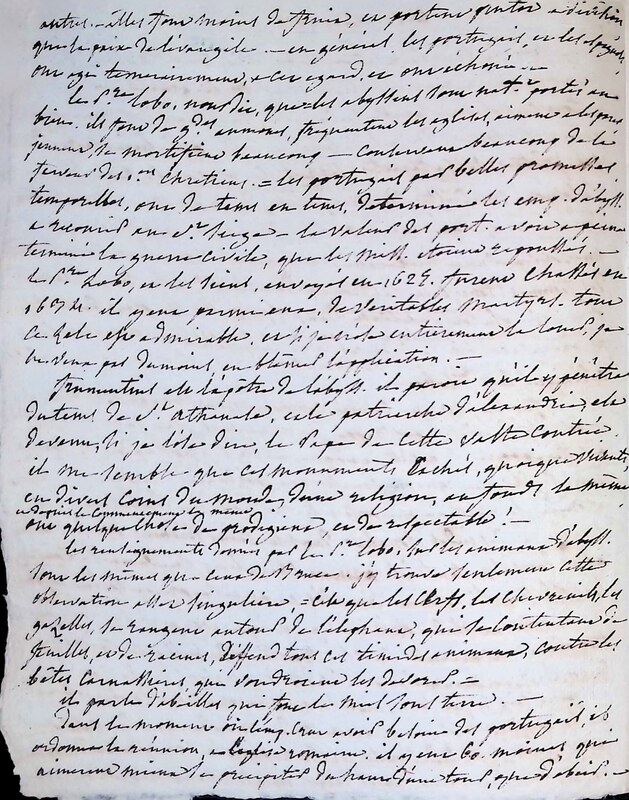 autres. – elles sont moins de
que la paix de l'évangile – en général, les portugais, et les espagnols
ont agi temerairement, a cet egard, et ont echoué –
le P.re lobo, nous dit, que les abyssins sont nat.t portés au
bien. ils font de g.des aumones, frequentent les eglises, aiment
jeunent, se mortifient beaucoup – conservent beaucoup de la
ferveur des 1.ers Chretiens. = les portugais par belles promesses
temporelles, ont de tems en tems, determiné les emp. d'abyss.
a recourir au S.t Siege – la valeur des port. avoit a peine
terminé la guerre civile, que les miss. etoient repoussés. –
le P.re Lobo, et les siens, envoyés en 1625. furent Chassés en
1634. il y eut parmi eux, de veritables martyrs. tout
ce zele est admirable, et si je n'ose entierement le louer, je
ne veux pas du moins, en blâmer l'application. –
frumentius est l'apôtre de l'abyss. il paroit qu'il y pénétra
du tems de S.t athanase, et le patriarche d'alexandrie, est
devenu, si je l'ose dire, le Pape de cette vaste contrée
il me semble que ces monuments Cachés, quoique vivants,
en divers Coins du monde, d'une religion, au fonds la même,
et depuis le Commencement la même
ont quelque chose de prodigieux, et de respectable! –
les renseignements donnés par le P.re lobo, sur les animaux d'abyss.
sont les mêmes que ceux de Bruce. j'y trouve seulement cette
observation assez singuliere, = c'est que les Cerfs, les Chevreuils, les
gazelles, se rangent autour de l'elephant, qui se contentant de
feuilles, et de racines, deffend tous ces timides animaux, contre les
bêtes Carnassieres, qui voudroient les devorer. =
il parle d'abeilles qui font le miel sous terre. –
dans le moment où l'emp. avoit besoin des portugais, et
ordonna la réunion, a l'eglise romaine, il y eut 60. moines qui
aimerent mieux se precipiter du haut d'une tour, que d'obeir. –